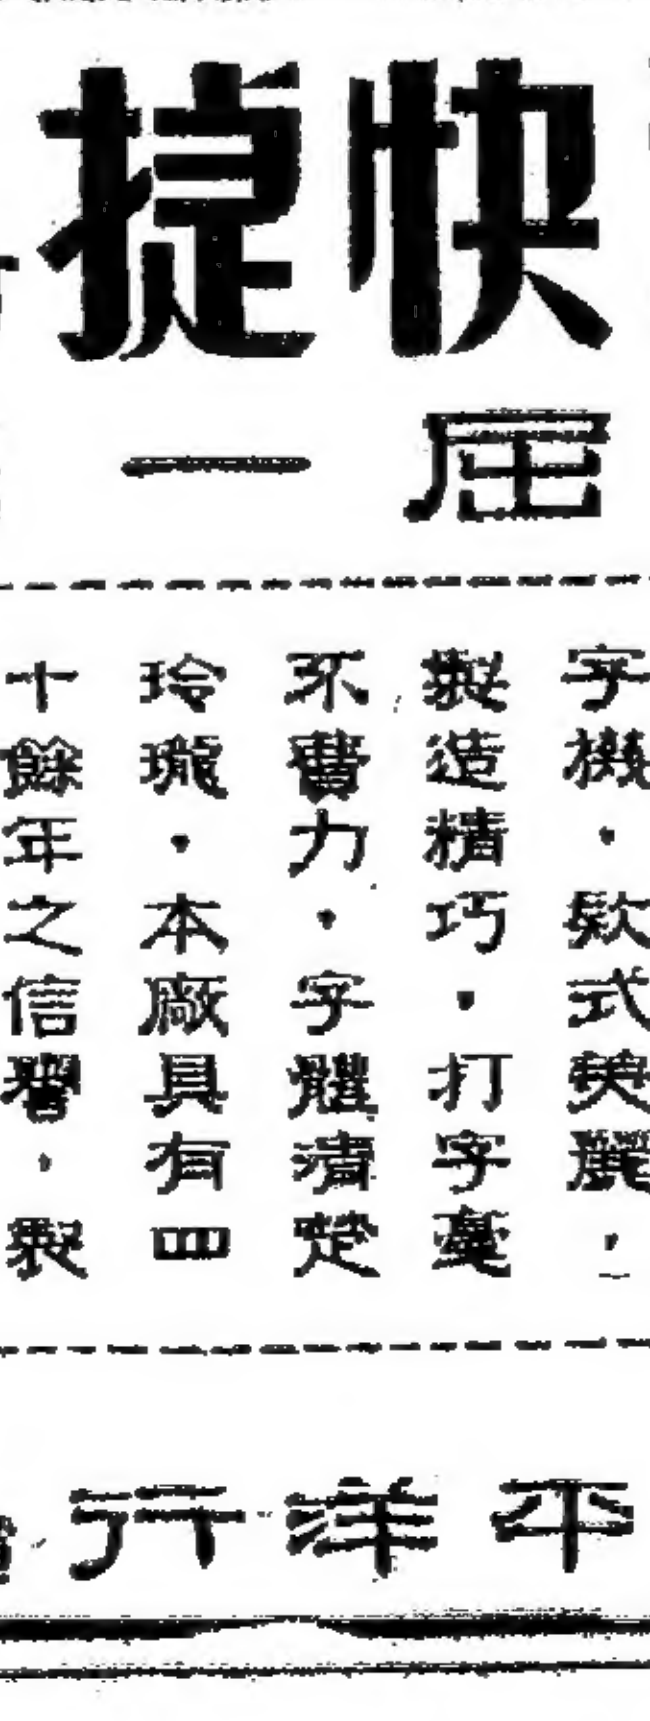 快捷
屆一
字機．欵式美麗，
製造精巧．打字毫
不費力．字體清楚
玲瓏．本廠具有四
十餘年之信譽．製
平洋行